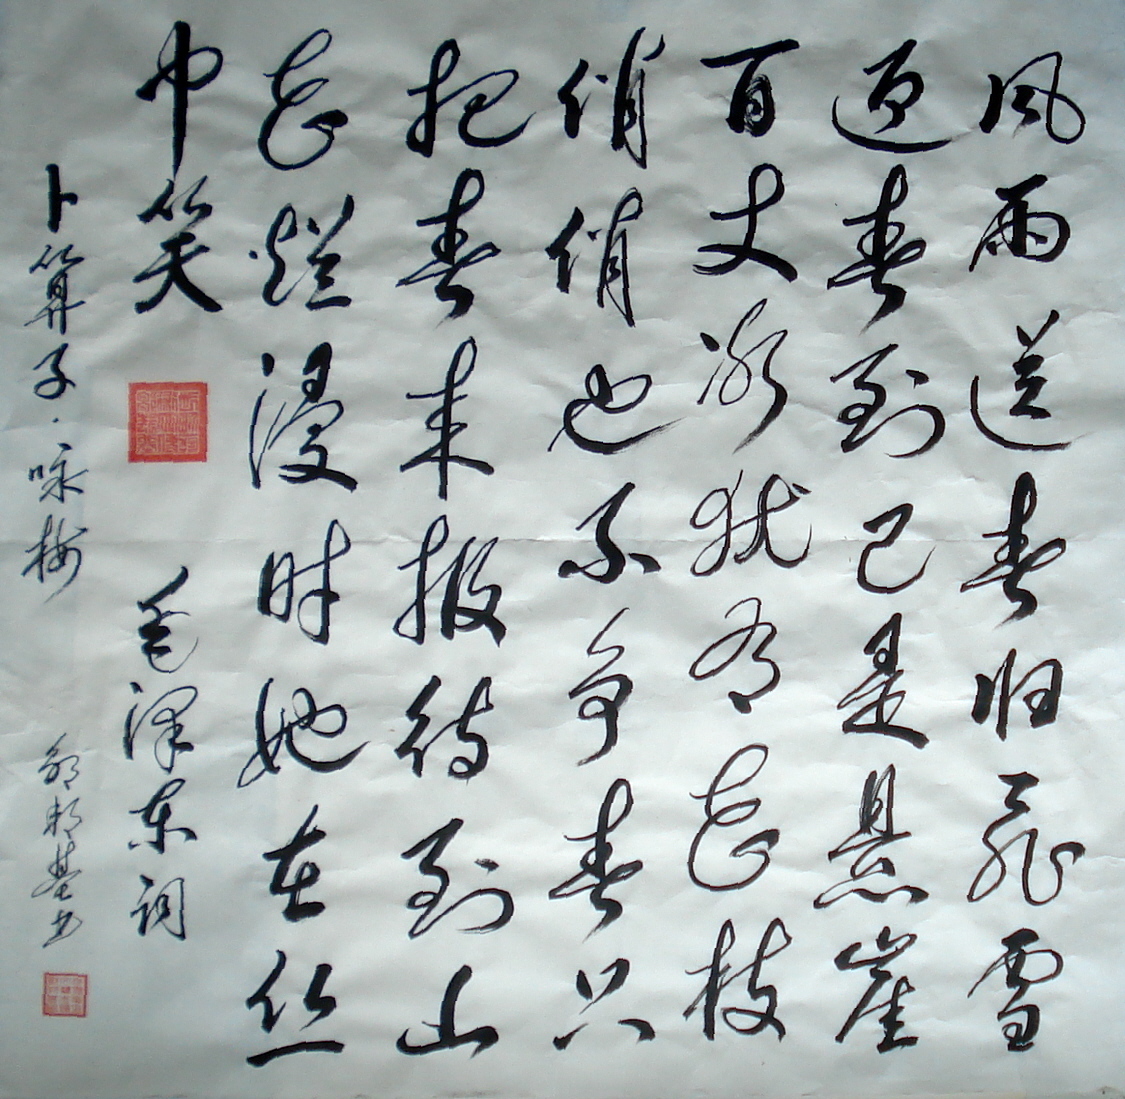 风雨送春归飞雪
迎春到已是悬崖
百丈冰犹有花枝
俏俏也不争春只
把春来报待到山
花烂漫时她在丛
中笑 毛泽东词
卜算子·咏梅 基书